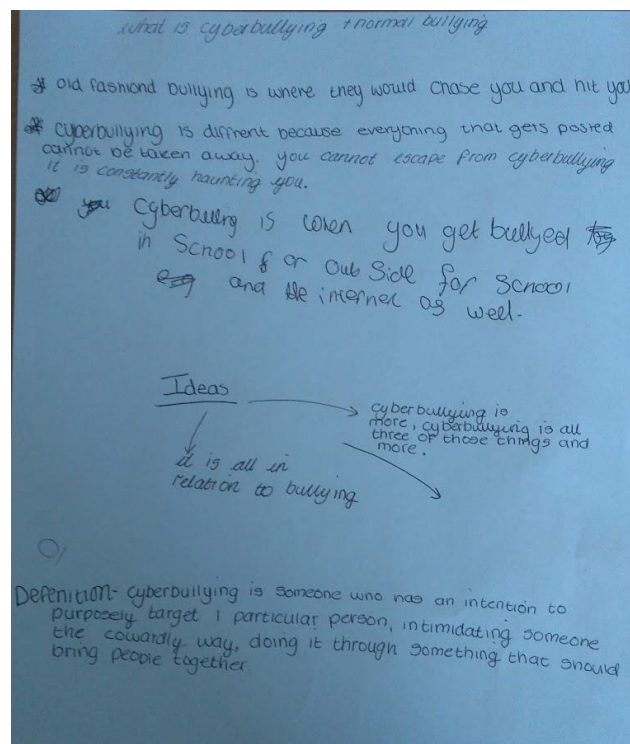 what is cyberbullying + normal bullying
* old fashiond bullying is where they would chase you and hit you
* cyberbullying is diffrent because everything that gets posted
cannot be taken away. you cannot escape from cyberbullying
it is constantly haunting you.
Cyberbulling is when you get bullyed
in School or out Side for School
and the internet as well.
Ideas
cyberbullying is
more, cyberbullying is all
three of those things and
more.
it is all in
relation to bullying
Defenition - cyberbullying is someone who has an intention to
purposely target 1 particular person, intimidating someone
the cowardly way, doing it through something that should
bring people together.